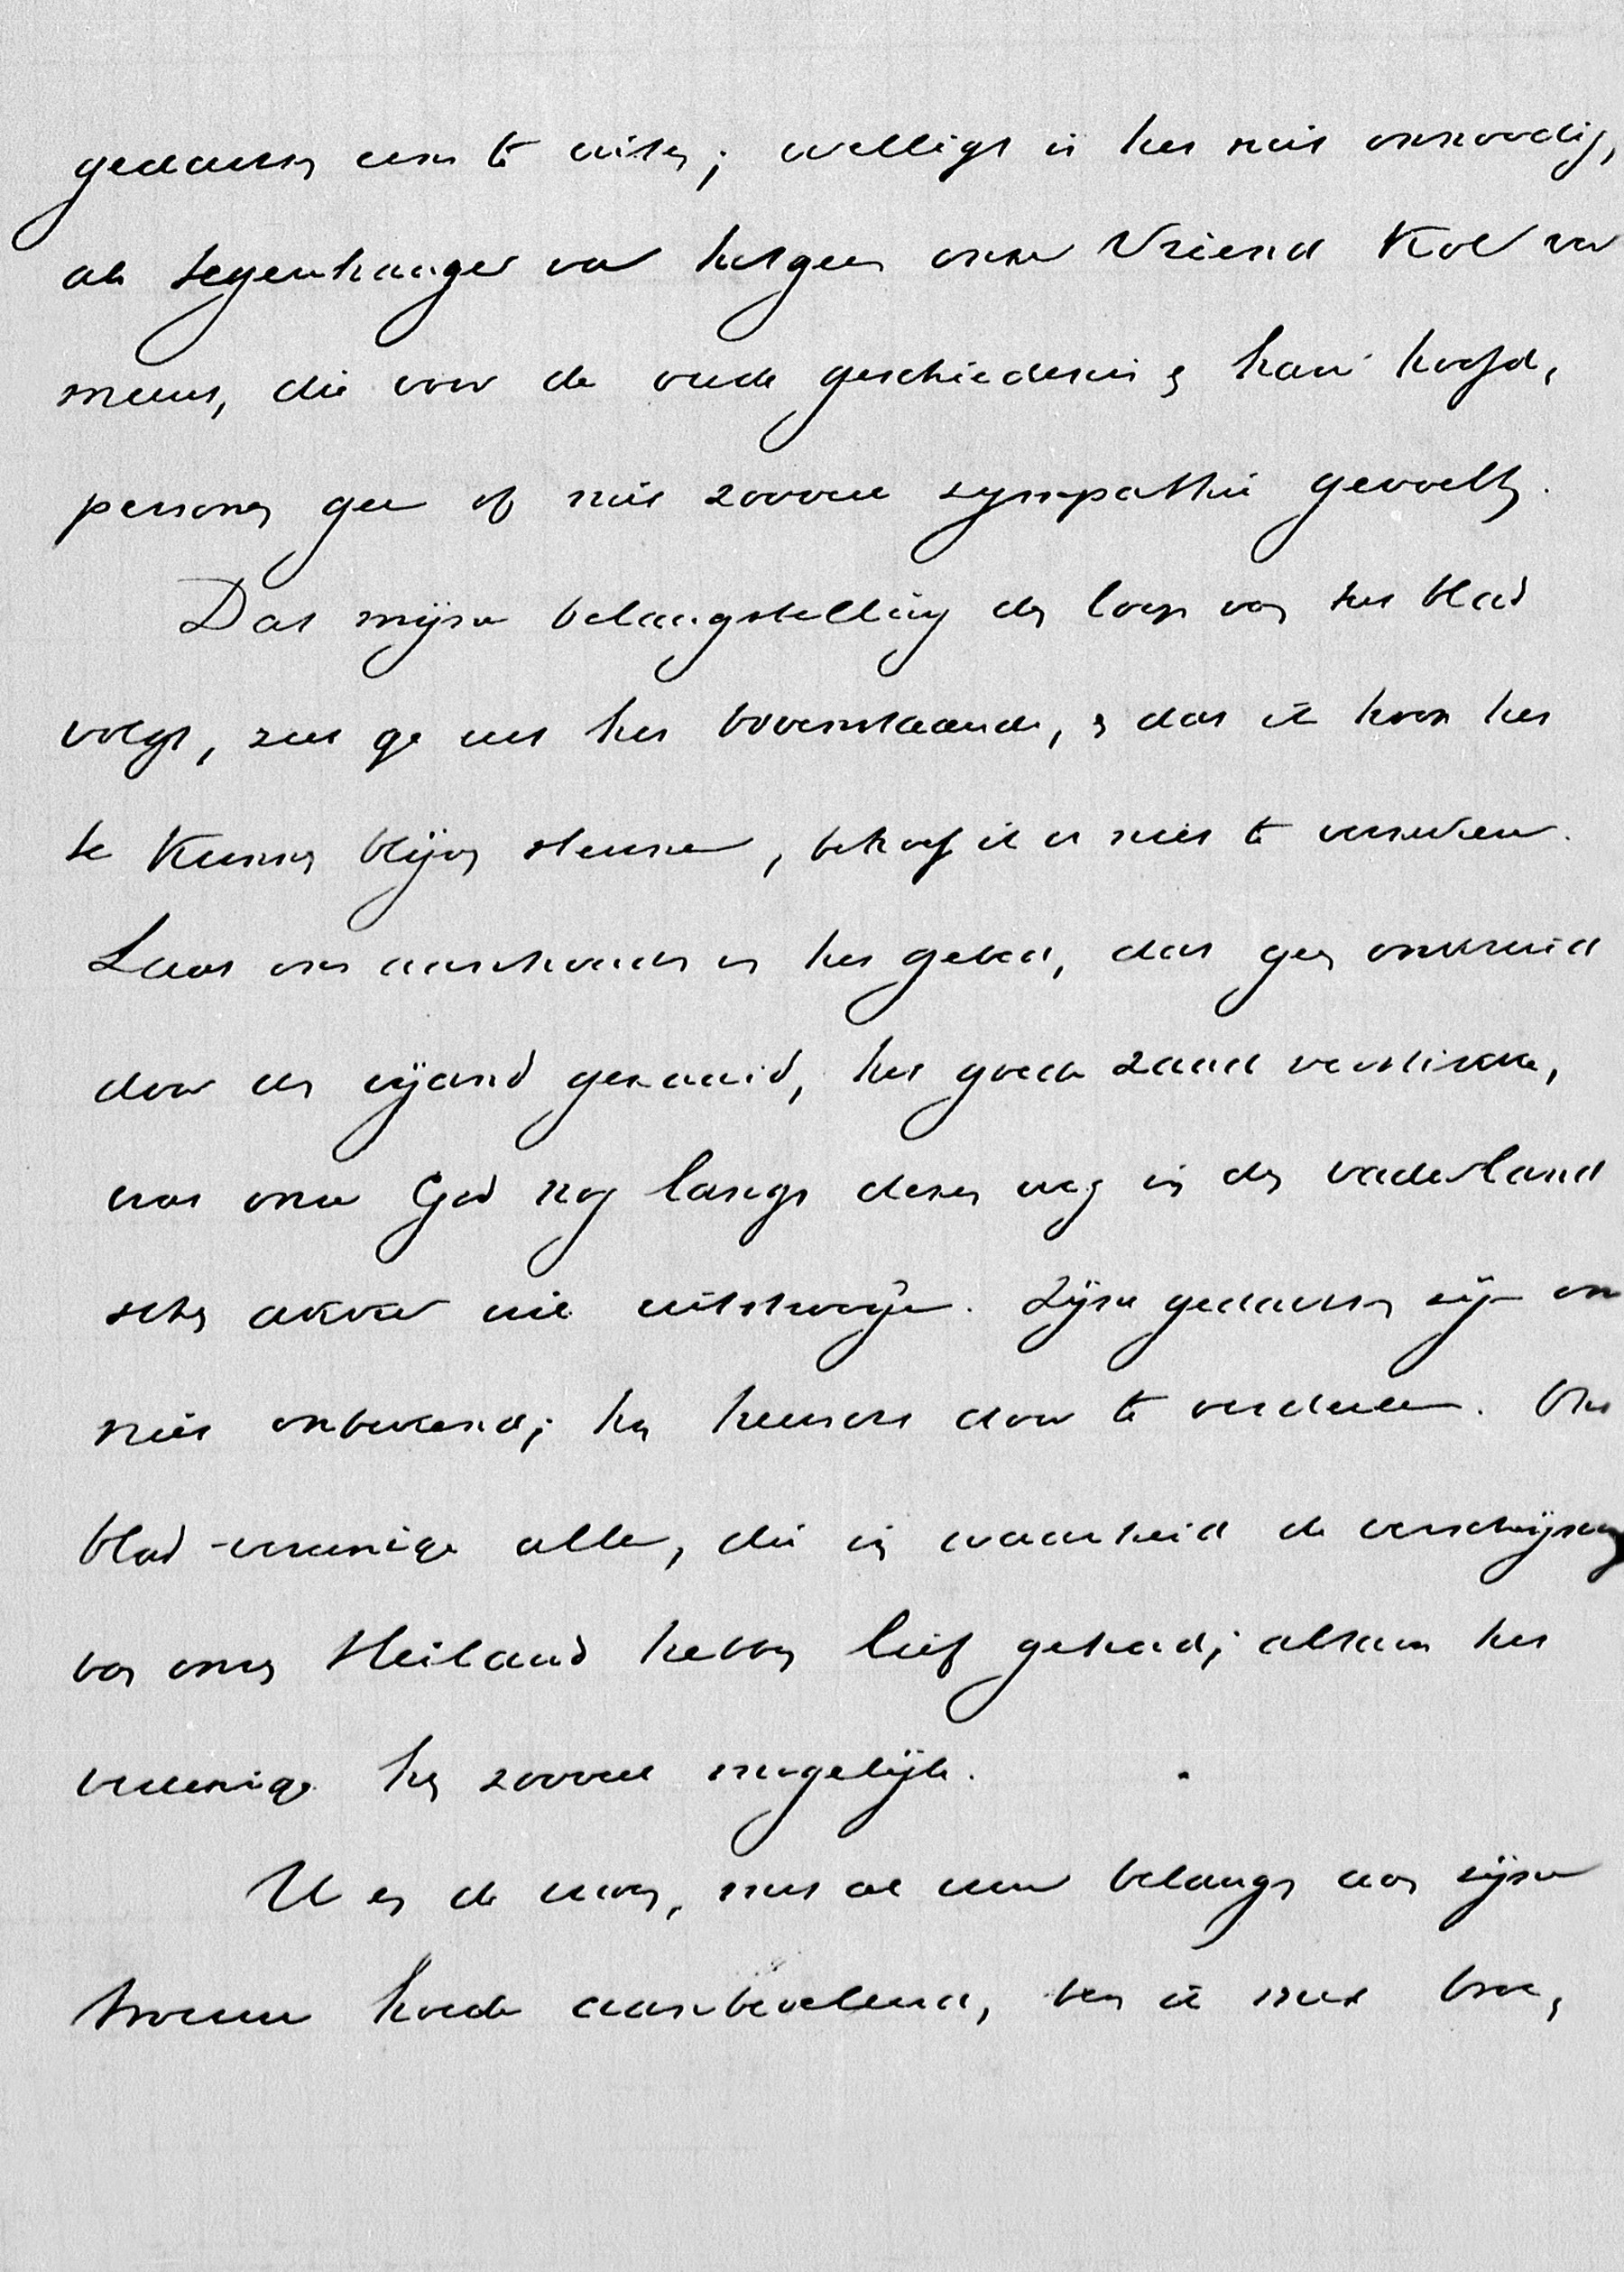 gedachten eens te uiten; welligt is het niet onnoodig,
als tegenhanger van hetgeen onze Vriend Kol ver
meent, die voor de oude geschiedenis & haar hoofd,
personen geen of niet zooveel sympathie gevoelt.
Dat mijne belangstelling den loop van het blad
volgt, ziet ge uit het bovenstaande, & dat ik hoop het
te kunnen blijven steunen, behoef ik u niet te verzekeren.
Laat ons aanhouden in het gebed, dat geen onkruid
door den vijand gezaaid, het goede zaad verstikke,
wat onze God nog langs dezen weg in den vaderland
schen akker wil uitstrooijen. Zijne gedachten zijn ons
niet onbekend; hij heerscht door te verdeelen. Ons
blad vereenige allen, die in waarheid de verschijning
van onzen Heiland hebben lief gehad; althans het
vereenige hen zooveel mogelijk.
U en de uwen, met al uwe belangen aan zijne
trouwe hoede aanbevelend, ben ik met broe,